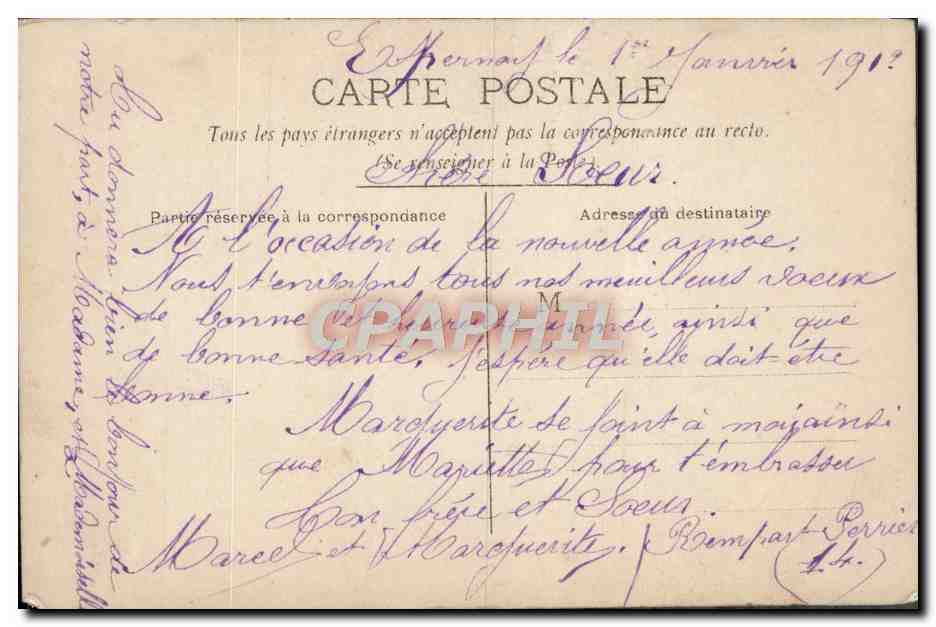 Epernay le 1er Janvier 1912
CARTE POSTALE
Tous les pays étrangers n'acceptent pas la correspondance au recto.
(Se renseigner à la Poste)
Chère Soeur.
Partie réservée à la correspondance
Adresse du destinataire
A l'occasion de la nouvelle année.
Nous t'envoyons tous nos meuilleurs voeux
M
de bonne et heureuse année, ainsi que
de bonne santé. J'espère qu'elle doit-être
bonne.
Marguerite se joint à moi, ainsi
que Mariette, pour t'embrasser
Ton frère et Soeur.
Marcel et Marguerite.
Rempart Perrier
(14.)
Tu donnera bien le bonjour de
notre part, à Madame, et Mademoiselle
CPAPHIL